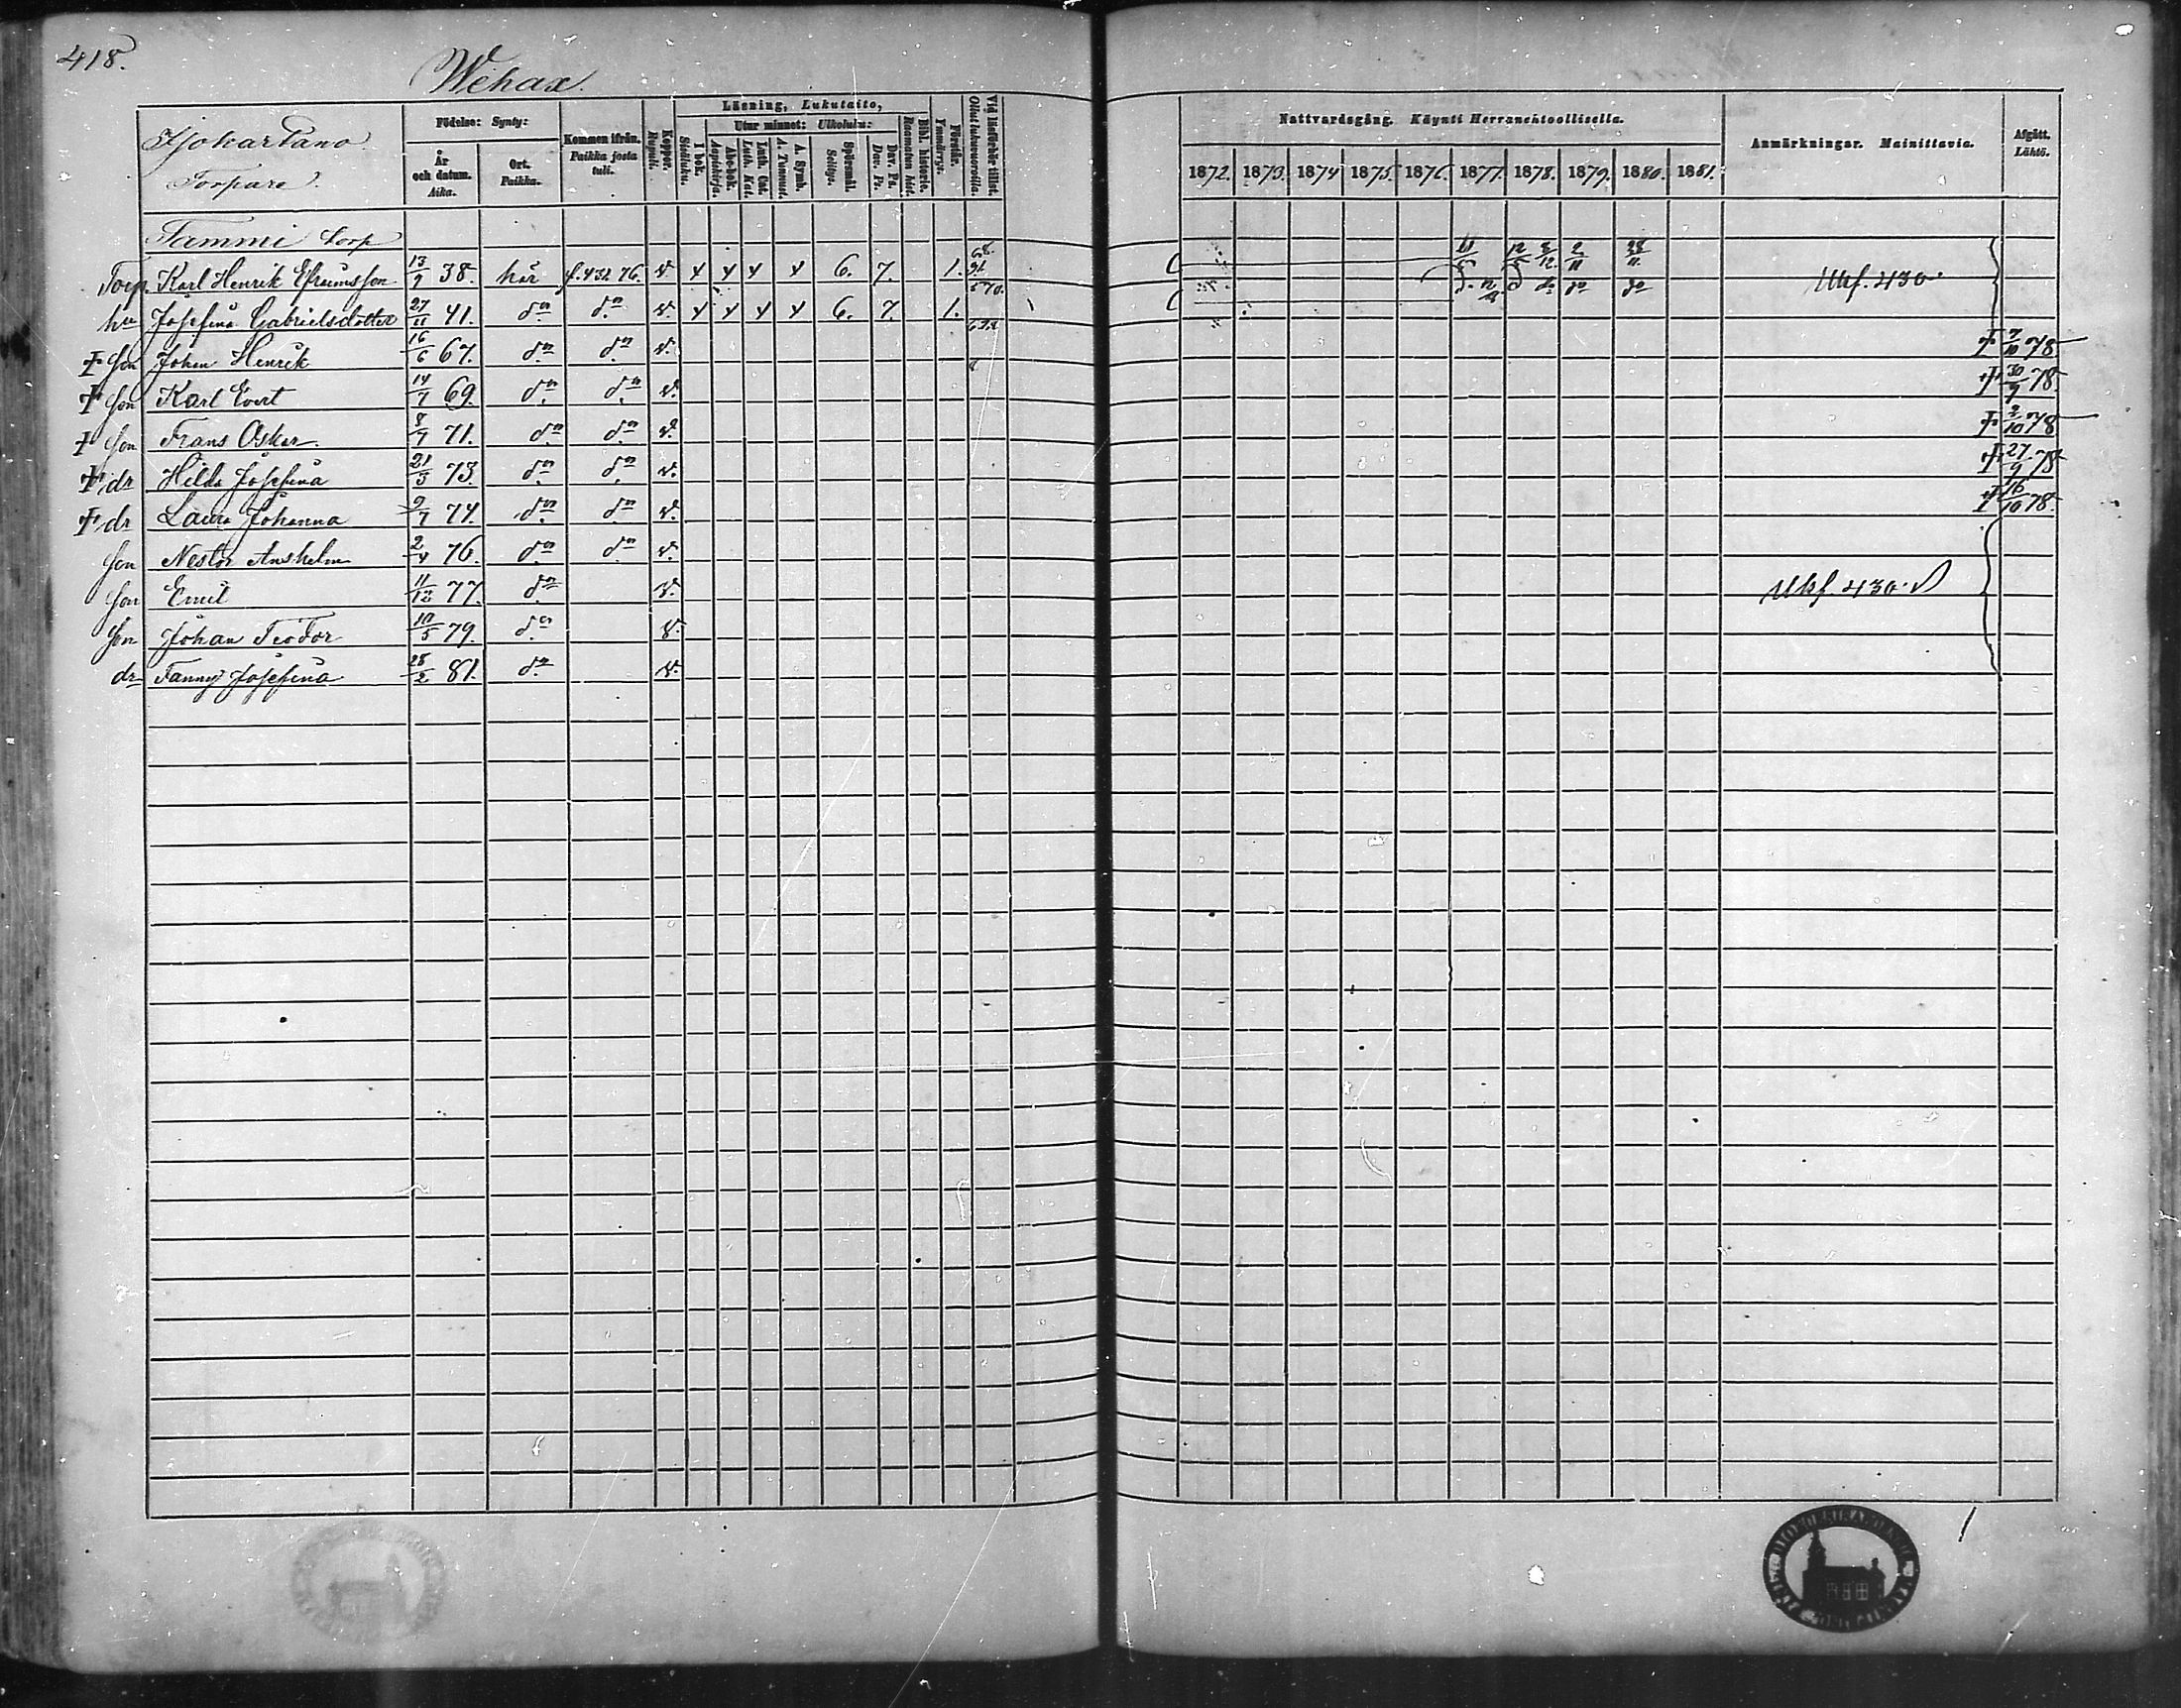 418.
Wehax.
Isokartano
Torpare.
Födelse: Synty:
År och datum. Aika.
Ort. Paikka.
Kommen ifrån. Paikka josta tuli.
Koppor. Rupuli.
Läsning, Lukutaito,
I bok. Sisäluku.
Utur minnet: Ulkoluku:
Abc-bok. Aapiskirja.
Luth. Cat. Luth. Kat.
A. Symb. A. Tunnust.
Spörsmål. Selitys.
Dav. Ps. Dav. Ps.
Bibl. historie. Raamatun hist.
Förstår. Ymmärrys.
Vid läsförhör tillst. Ollut lukuvuoroilla.
Nattvardsgång. Käynti Herranehtoollisella.
1872. 1873. 1874 1875. 1876. 1877. 1878. 1879. 1880. 1881.
Anmärkningar. Mainittavia.
Afgått. Lähtö.
Tammi torp
Torp. Karl Henrik Efraimsson 13/9 38. här f. 432 76. v. x x x x 6. 7. 1. Utf. 430.
hu Josefina Gabrielsdotter 27/11 41. do do v. x x x x 6. 7. 1.
† son Johan Henrik 16/6 67. do do v. † 7/10 78
† son Karl Evert 14/7 69. do do v. † 30/9 78.
† son Frans Oskar. 8/7 71. do do v. † 2/10 78
† dr Hilda Josefina 21/3 73. do do v. † 27/9 78
† dr Laura Johanna 9/7 74. do do v. † 16/10 78.
son Nestor Anshelm 2/4 76. do do v.
son Emil 11/12 77. do v. Utf. 430.
son Johan Teodor 10/5 79. do v.
dr Fanny Josefina 28/2 81. do v.